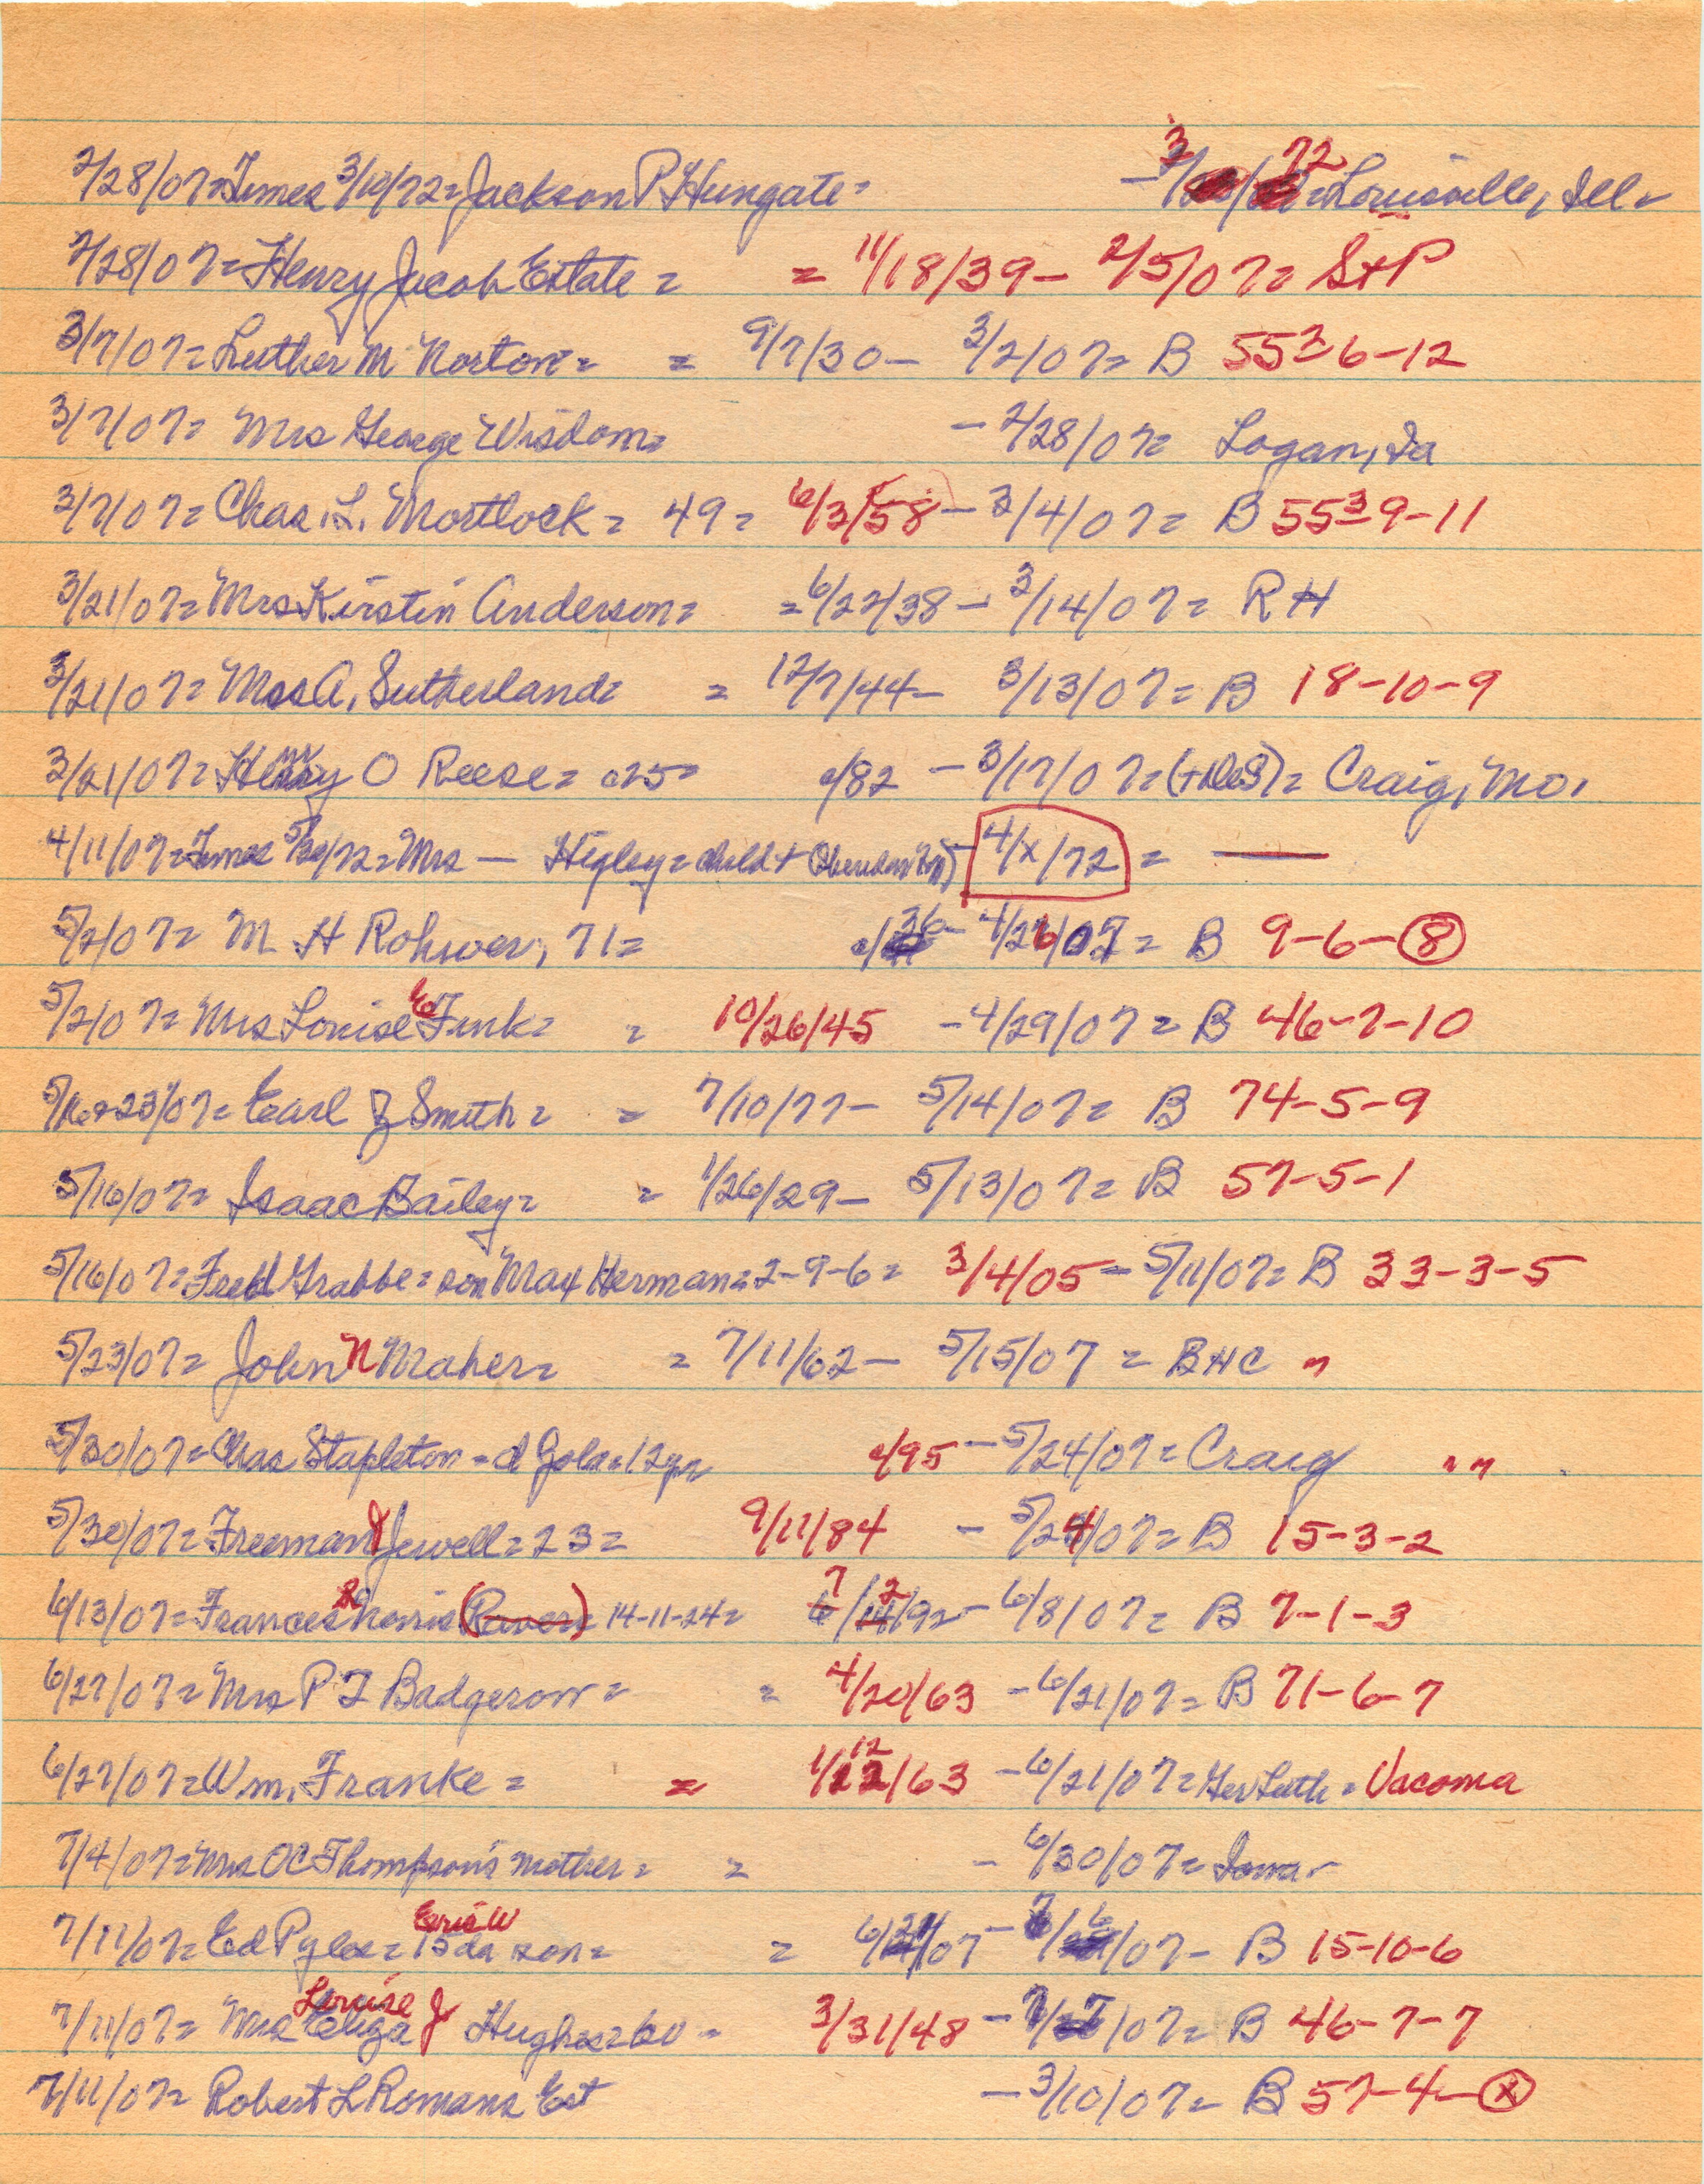 2/28/07=Times 3/10/72=Jackson P Hungate= - 3/ /72=Louisville, Ill-
2/28/07=Henry Jacob Estate= = 11/18/39- 2/5/07= S+P
3/7/07=Luther M Norton= = 9/7/30- 3/2/07= B 55 2 6-12
3/7/07= Mrs George Wisdom= - 2/28/07= Logan, Ia
3/7/07= Chas. L. Mortlock= 49= 6/3/58 - 3/4/07= B 55 3 9-11
3/21/07= Mrs Kirstin Anderson= =6/22/38 - 3/14/07= RH
3/21/07= Mrs A. Sutherland= = 12/7/44- 3/13/07= B 18-10-9
3/21/07=Henry O Reese= c25= c/82 - 3/17/07=(+DeS)= Craig, Mo.
4/11/07=Times 5/30/72=Mrs — Higley=child+ - 4/x/72 = —
5/2/07= M H Rohwer, 71= c/36- 4/26/07= B 9-6-8
5/2/07= Mrs Louise E Funk= = 10/26/45 -4/29/07= B 46-7-10
5/16+23/07= Earl J Smith= = 7/10/77- 5/14/07= B 74-5-9
5/16/07= Isaac Bailey= = 1/26/29- 5/13/07= B 57-5-1
5/16/07=Fred Grabbe=son Max Herman=2-9-6= 3/4/05-5/11/07= B 33-3-5
5/23/07= John N Maher= = 7/11/62- 5/15/07 = BHC "
5/30/07=Chas Stapleton-d Gola=12yr c/95 -5/24/07=Craig " "
5/30/07=Freeman J Jewell=23= 9/11/84 - 5/24/07= B 15-3-2
6/13/07=Frances R Norris (Raver)= 14-11-24= 6 7/14 2/92-6/8/07= B 7-1-3
6/27/07=Mrs P T Badgerow= = 4/20/63 -6/21/07= B 71-6-7
6/27/07=Wm. Franke= = 1/12/63 -6/21/07=Ger Luth= Vacoma
7/4/07=Mrs OC Thompson's mother= = - 6/30/07= Iowa-
7/11/07=Ed Pyles= 15 da son= Earis W = 6/21/07 - 7/6/07- B 15-10-6
7/11/07= Mrs Eliza Louise J Hughes=60- 3/31/48 -7/7/07= B 46-7-7
7/11/07= Robert L Romans Est - 3/10/07= B 57-4-x